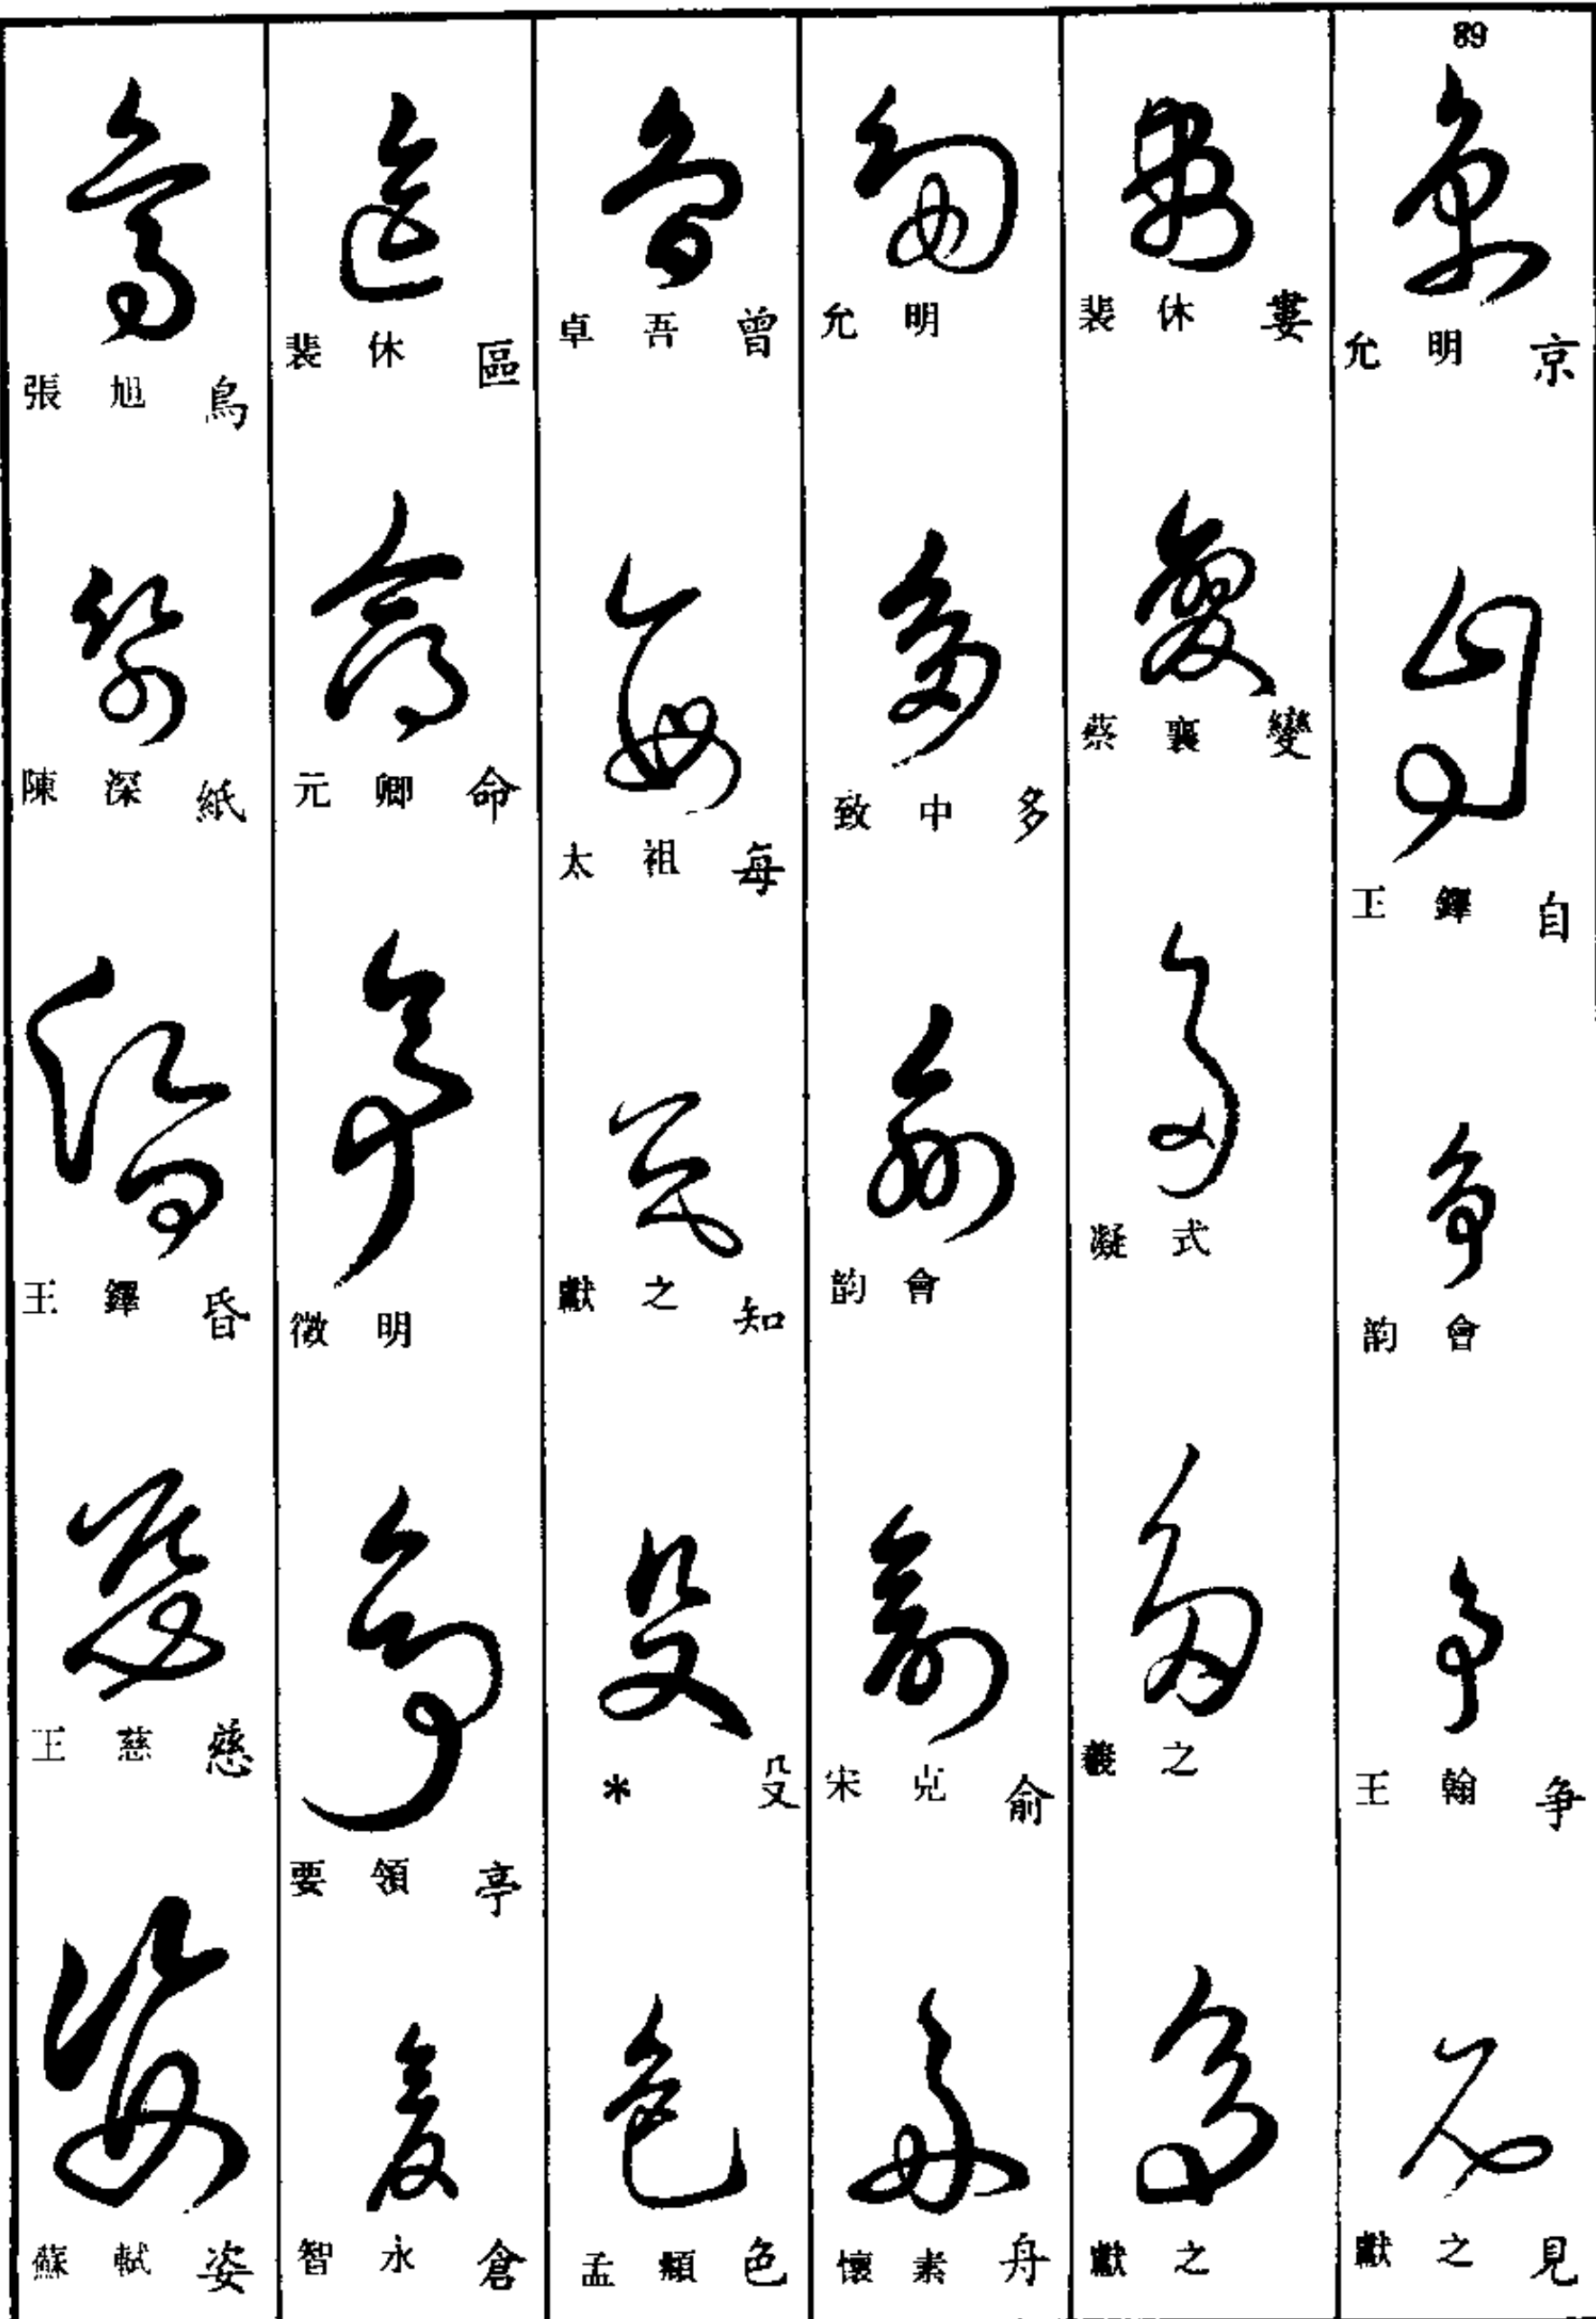 89
允明 京
王鐸 自
韵會
王翰 爭
獻之 見
裴休 婁
蔡襄 變
凝式
羲之
獻之
允明
致中 多
韵會
宋克 俞
懷素 舟
卓吾 曾
太祖 每
獻之 知
* 殳
孟頫 色
裴休 區
元卿 命
徵明
要領 亭
智永 倉
張旭 鳥
陳深 紙
王鐸 昏
王慈 慈
蘇軾 姿